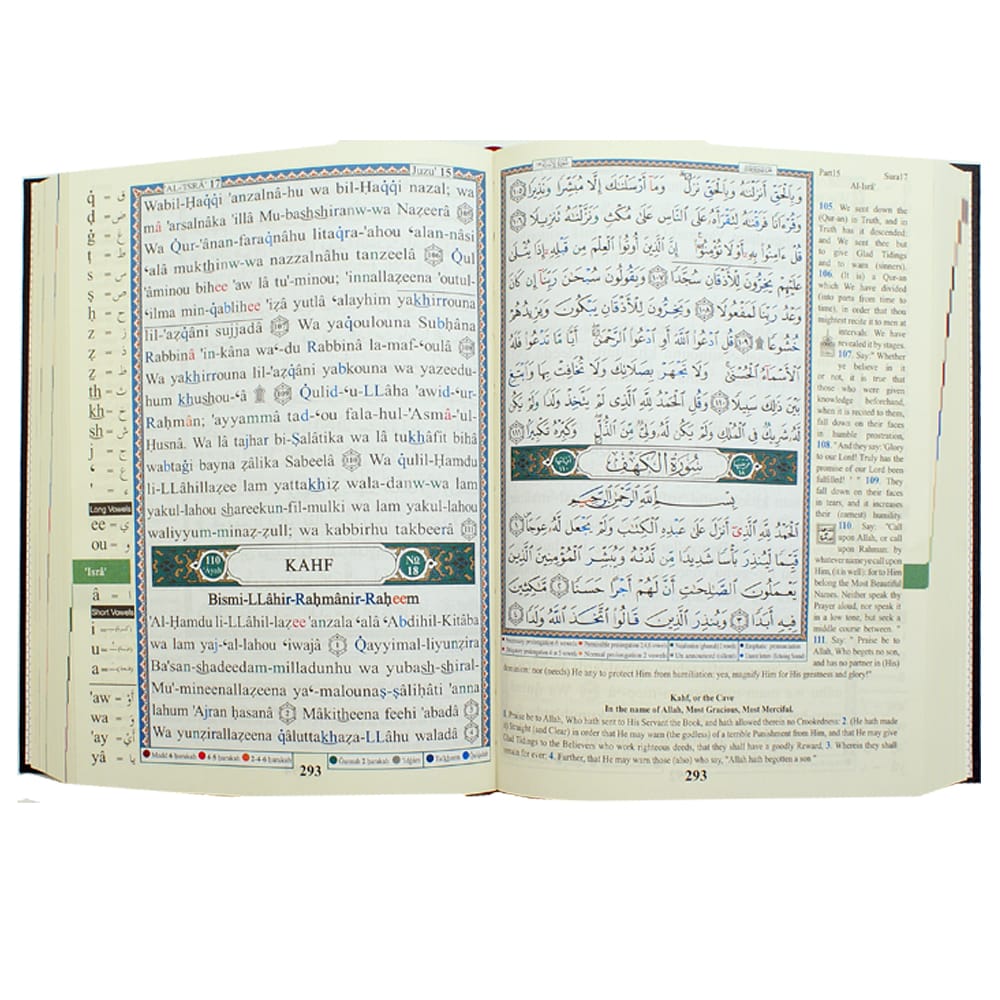 AL-'ISRÂ' 17
Juzu' 15
Wabil-Ḥaqqi 'anzalnâ-hu wa bil-Ḥaqqi nazal; wa
mâ 'arsalnâka 'illâ Mu-bashshiranw-wa Naẓeerâ 105
Wa Qur-'ânan-faraqnâhu litaqra-'ahou ʻalan-nâsi
ʻalâ mukthinw-wa nazzalnâhu tanzeelâ 106 Qul
'âminou bihee 'aw lâ tu'-minou; 'innallaẓeena 'outul-
ʻilma min-qablihee 'iẓâ yutlâ ʻalayhim yakhirrouna
lil-'aẓqâni sujjadâ 107 Wa yaqoulouna Subḥâna
Rabbinâ 'in-kâna waʻ-du Rabbinâ la-maf-ʻoulâ 108
Wa yakhirrouna lil-'aẓqâni yabkouna wa yazeedu-
hum khushou-ʻâ ۩ 109 Qulid-ʻu-LLâha 'awid-ʻur-
Raḥmân; 'ayyammâ tad-ʻou fala-hul-'Asmâ-'ul-
Ḥusnâ. Wa lâ tajhar bi-Ṣalâtika wa lâ tukhâfit bihâ
wabtaġi bayna ẓâlika Sabeelâ 110 Wa qulil-Ḥamdu
li-LLâhillaẓee lam yattakhiẓ wala-dan-w-wa lam
yakul-lahou shareekun-fil-mulki wa lam yakul-lahou
waliyyum-minaẓ-ẓull; wa kabbirhu takbeerâ 111
110 Ayah
KAHF
No 18
Bismi-LLâhir-Raḥmânir-Raḥeem
'Al-Ḥamdu li-LLâhil-laẓee 'anzala ʻalâ ʻAbdihil-Kitâba
wa lam yaj-ʻal-lahou ʻiwajâ 1 Qayyimal-liyunẓira
Ba'san-shadeedam-milladunhu wa yubash-shiral-
Mu'-mineenallaẓeena yaʻ-malounaṣ-ṣâliḥâti 'anna
lahum 'Ajran ḥasanâ 2 Mâkitheena feehi 'abadâ 3
Wa yunẓirallaẓeena qâluttakhaẓa-LLâhu waladâ 4
Madd 6 ḥarakah
4-5 ḥarakah
2-4-6 ḥarakah
Ġunnah 2 ḥarakah
'Idġâm
Tafkheem
Qalqalah
293
q = ق
ḍ = ض
ġ = غ
ṭ = ط
s = س
ṣ = ص
ḥ = ح
z = ز
ẓ = ذ
ẓ = ظ
th = ث
kh = خ
sh = ش
j = ج
ʻ = ع
' = ء
Long Vowels
ee = ي
ou = و
'Isrâ'
â = ا
Short Vowels
i
u
a
'aw = أَوْ
wa = وَ
'ay = أَيْ
yâ = يا
وَبِالْحَقِّ أَنزَلْنَٰهُ وَبِالْحَقِّ نَزَلَ ۗ وَمَآ أَرْسَلْنَٰكَ إِلَّا مُبَشِّرًا وَنَذِيرًا ١٠٥
وَقُرْءَانًا فَرَقْنَٰهُ لِتَقْرَأَهُۥ عَلَى النَّاسِ عَلَىٰ مُكْثٍ وَنَزَّلْنَٰهُ تَنزِيلًا ١٠٦
قُلْ ءَامِنُوا۟ بِهِۦٓ أَوْ لَا تُؤْمِنُوٓا۟ ۚ إِنَّ الَّذِينَ أُوتُوا۟ الْعِلْمَ مِن قَبْلِهِۦٓ إِذَا يُتْلَىٰ
عَلَيْهِمْ يَخِرُّونَ لِلْأَذْقَانِ سُجَّدًا ١٠٧ وَيَقُولُونَ سُبْحَٰنَ رَبِّنَآ إِن كَانَ
وَعْدُ رَبِّنَا لَمَفْعُولًا ١٠٨ وَيَخِرُّونَ لِلْأَذْقَانِ يَبْكُونَ وَيَزِيدُهُمْ
خُشُوعًا ۩ ١٠٩ قُلِ ادْعُوا۟ اللَّهَ أَوِ ادْعُوا۟ الرَّحْمَٰنَ ۖ أَيًّا مَّا تَدْعُوا۟ فَلَهُ
الْأَسْمَآءُ الْحُسْنَىٰ ۚ وَلَا تَجْهَرْ بِصَلَاتِكَ وَلَا تُخَافِتْ بِهَا وَابْتَغِ
بَيْنَ ذَٰلِكَ سَبِيلًا ١١٠ وَقُلِ الْحَمْدُ لِلَّهِ الَّذِى لَمْ يَتَّخِذْ وَلَدًا وَلَمْ يَكُن
لَّهُۥ شَرِيكٌ فِى الْمُلْكِ وَلَمْ يَكُن لَّهُۥ وَلِىٌّ مِّنَ الذُّلِّ ۖ وَكَبِّرْهُ تَكْبِيرًا ١١١
آياتها ١١٠
سُورَةُ الْكَهْفِ
ترتيبها ١٨
بِسْمِ اللَّهِ الرَّحْمَٰنِ الرَّحِيمِ
الْحَمْدُ لِلَّهِ الَّذِىٓ أَنزَلَ عَلَىٰ عَبْدِهِ الْكِتَٰبَ وَلَمْ يَجْعَل لَّهُۥ عِوَجَا ١
قَيِّمًا لِّيُنذِرَ بَأْسًا شَدِيدًا مِّن لَّدُنْهُ وَيُبَشِّرَ الْمُؤْمِنِينَ الَّذِينَ
يَعْمَلُونَ الصَّٰلِحَٰتِ أَنَّ لَهُمْ أَجْرًا حَسَنًا ٢ مَّٰكِثِينَ
فِيهِ أَبَدًا ٣ وَيُنذِرَ الَّذِينَ قَالُوا۟ اتَّخَذَ اللَّهُ وَلَدًا ٤
Necessary prolongation 6 vowels
Permissible prolongation 2,4,6 vowels
Nazalization (ghunnah) 2 vowels
Emphatic pronunciation
Obligatory prolongation 4 or 5 vowels
Normal prolongation 2 vowels
Un announced (silent)
Unrest letters (Echoing Sound)
Part15 Sura17
Al-Isrâ'
105. We sent down the
(Qur-an) in Truth, and in
Truth has it descended:
and We sent thee but
to give Glad Tidings
and to warn (sinners).
106. (It is) a Qur-an
which We have divided
(into parts from time to
time), in order that thou
mightest recite it to men at
intervals: We have
revealed it by stages.
107. Say:" Whether
ye believe in it
or not, it is true that
those who were given
knowledge beforehand,
when it is recited to them,
fall down on their faces
in humble prostration,
108. "And they say: 'Glory
to our Lord! Truly has the
promise of our Lord been
fulfilled! ' " 109. They
fall down on their faces
in tears, and it increases
their (earnest) humility.
110. Say: "Call
upon Allah, or call
upon Rahman: by
whatever name ye call upon
Him, (it is well): for to Him
belong the Most Beautiful
Names. Neither speak thy
Prayer aloud, nor speak it
in a low tone, but seek a
middle course between. "
111. Say: " Praise be to
Allah, Who begets no son,
and has no partner in (His)
dominion: nor (needs) He any to protect Him from humiliation: yea, magnify Him for His greatness and glory!"
Kahf, or the Cave
In the name of Allah, Most Gracious, Most Merciful.
1. Praise be to Allah, Who hath sent to His Servant the Book, and hath allowed therein no Crookedness: 2. (He hath made
it) Straight (and Clear) in order that He may warn (the godless) of a terrible Punishment from Him, and that He may give
Glad Tidings to the Believers who work righteous deeds, that they shall have a goodly Reward, 3. Wherein they shall
remain for ever: 4. Further, that He may warn those (also) who say, "Allah hath begotten a son "
293